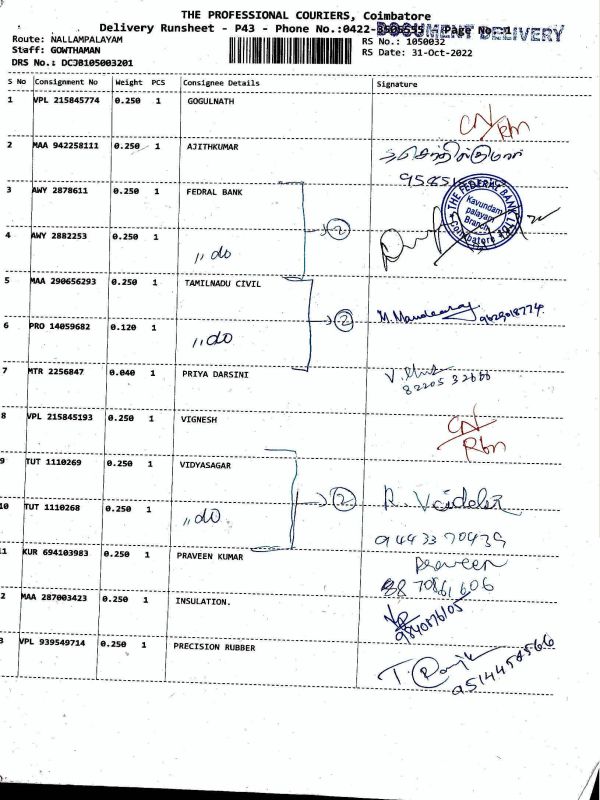 THE PROFESSIONAL COURIERS, Coimbatore
Delivery Runsheet - P43 - Phone No.:0422- Page No.:1
DOCUMENT DELIVERY
Route: NALLAMPALAYAM RS No.: 1050032
Staff: GOWTHAMAN RS Date: 31-Oct-2022
DRS No.: DCJB105003201
S No Consignment No Weight PCS Consignee Details Signature
1 VPL 215845774 0.250 1 GOGULNATH
CN/Rbn
2 MAA 942258111 0.250 1 AJITHKUMAR
3 AWY 2878611 0.250 1 FEDRAL BANK
THE FEDERAL BANK LTD.
Kavundam
palayam
Branch
Coimbatore
2
4 AWY 2882253 0.250 1
,, do
5 MAA 290656293 0.250 1 TAMILNADU CIVIL
2 9629018774
6 PRO 14059682 0.120 1
,, do
7 MTR 2256847 0.040 1 PRIYA DARSINI
8 VPL 215845193 0.250 1 VIGNESH
CN/Rbn
9 TUT 1110269 0.250 1 VIDYASAGAR
2
10 TUT 1110268 0.250 1
,, do
9443370439
11 KUR 694103983 0.250 1 PRAVEEN KUMAR
Praveen
2 MAA 287003423 0.250 1 INSULATION.
9840876105
3 VPL 939549714 0.250 1 PRECISION RUBBER
9514458566